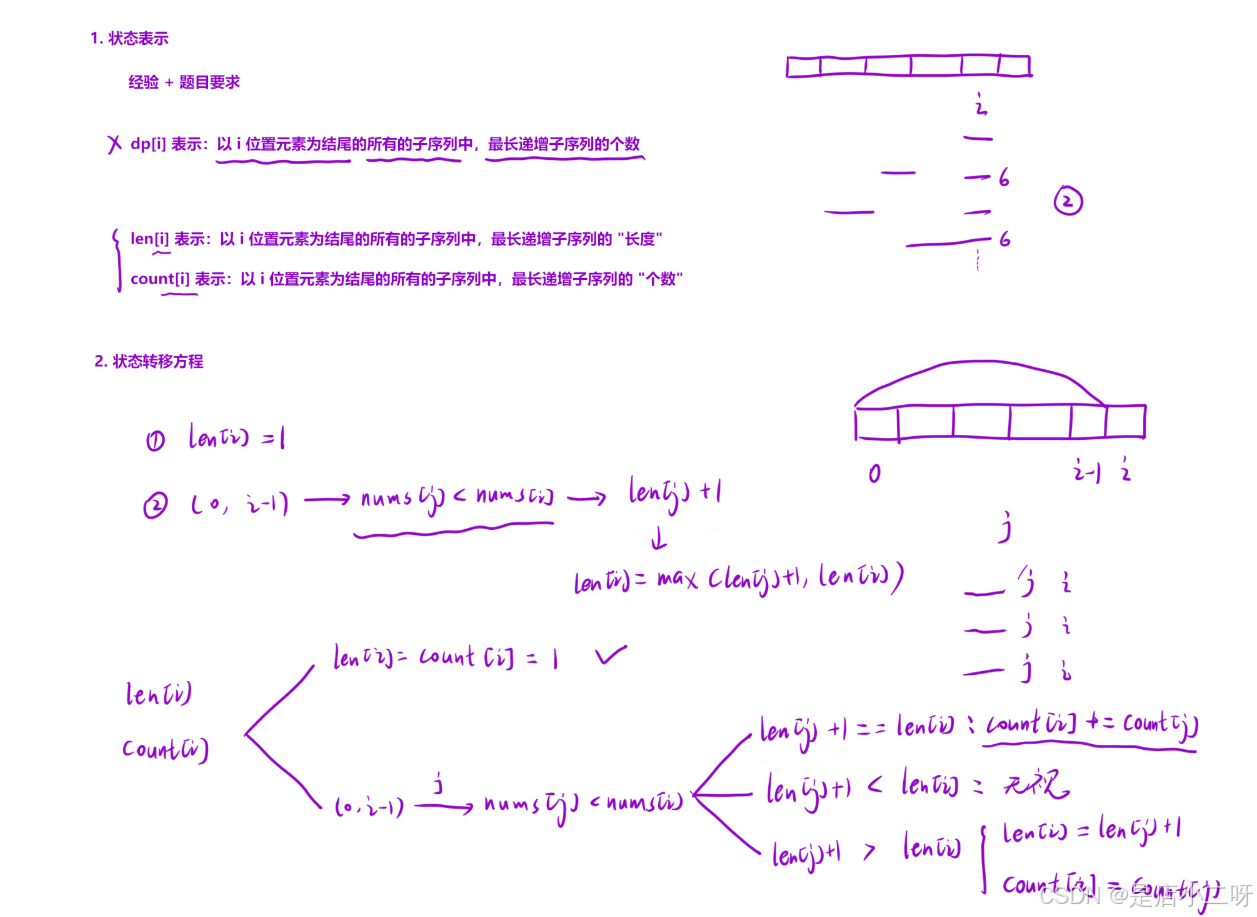 1. 状态表示
经验 + 题目要求
i
× dp[i] 表示：以 i 位置元素为结尾的所有的子序列中，最长递增子序列的个数
6
②
len[i] 表示：以 i 位置元素为结尾的所有的子序列中，最长递增子序列的 "长度"
6
count[i] 表示：以 i 位置元素为结尾的所有的子序列中，最长递增子序列的 "个数"
2. 状态转移方程
① len[i] = 1
0 i-1 i
② (0, i-1) → nums[j] < nums[i] → len[j] + 1
↓
j
len[i] = max(len[j]+1, len[i])
j i
j i
j i
len[i] = count[i] = 1 ✓
len[i]
count[i]
len[j] + 1 == len[i] : count[i] += count[j]
(0, i-1) j → nums[j] < nums[i]
len[j]+1 < len[i] : 无视
len[j]+1 > len[i] { len[i] = len[j]+1
count[i] = count[j]
CSDN @是店小二呀